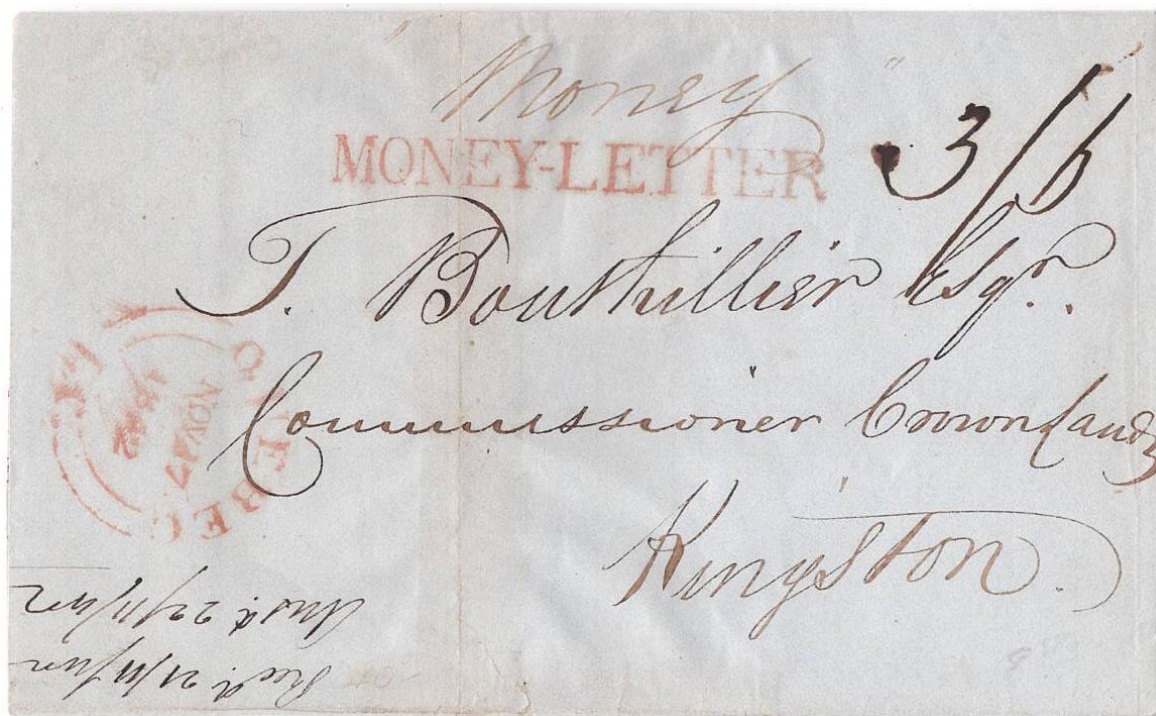 "Money"
MONEY-LETTER
3/6
T. Bouthillier Esqr.
Commissioner Crown Lands
Kingston
QUEBEC
NOV 17
1842
L.C.
Recd. 21/11/42
Ansd. 22/11/42